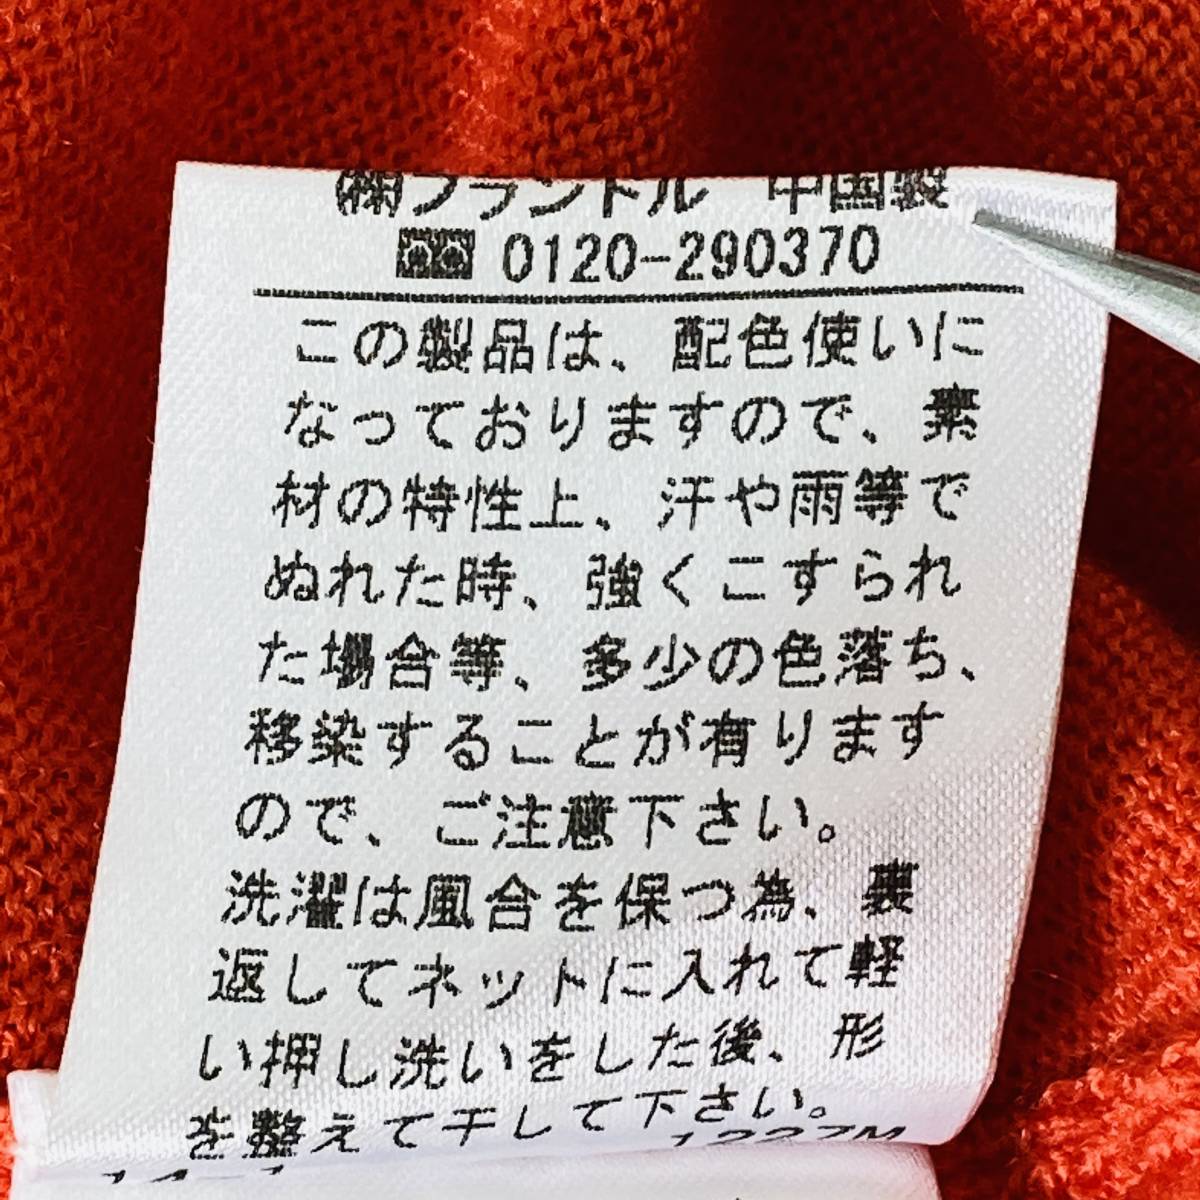 ㈱フランドル 中国製
☎☎ 0120-290370
この製品は、配色使いに
なっておりますので、素
材の特性上、汗や雨等で
ぬれた時、強くこすられ
た場合等、多少の色落ち、
移染することが有ります
ので、ご注意下さい。
洗濯は風合を保つ為、裏
返してネットに入れて軽
い押し洗いをした後、形
を整えて干して下さい。